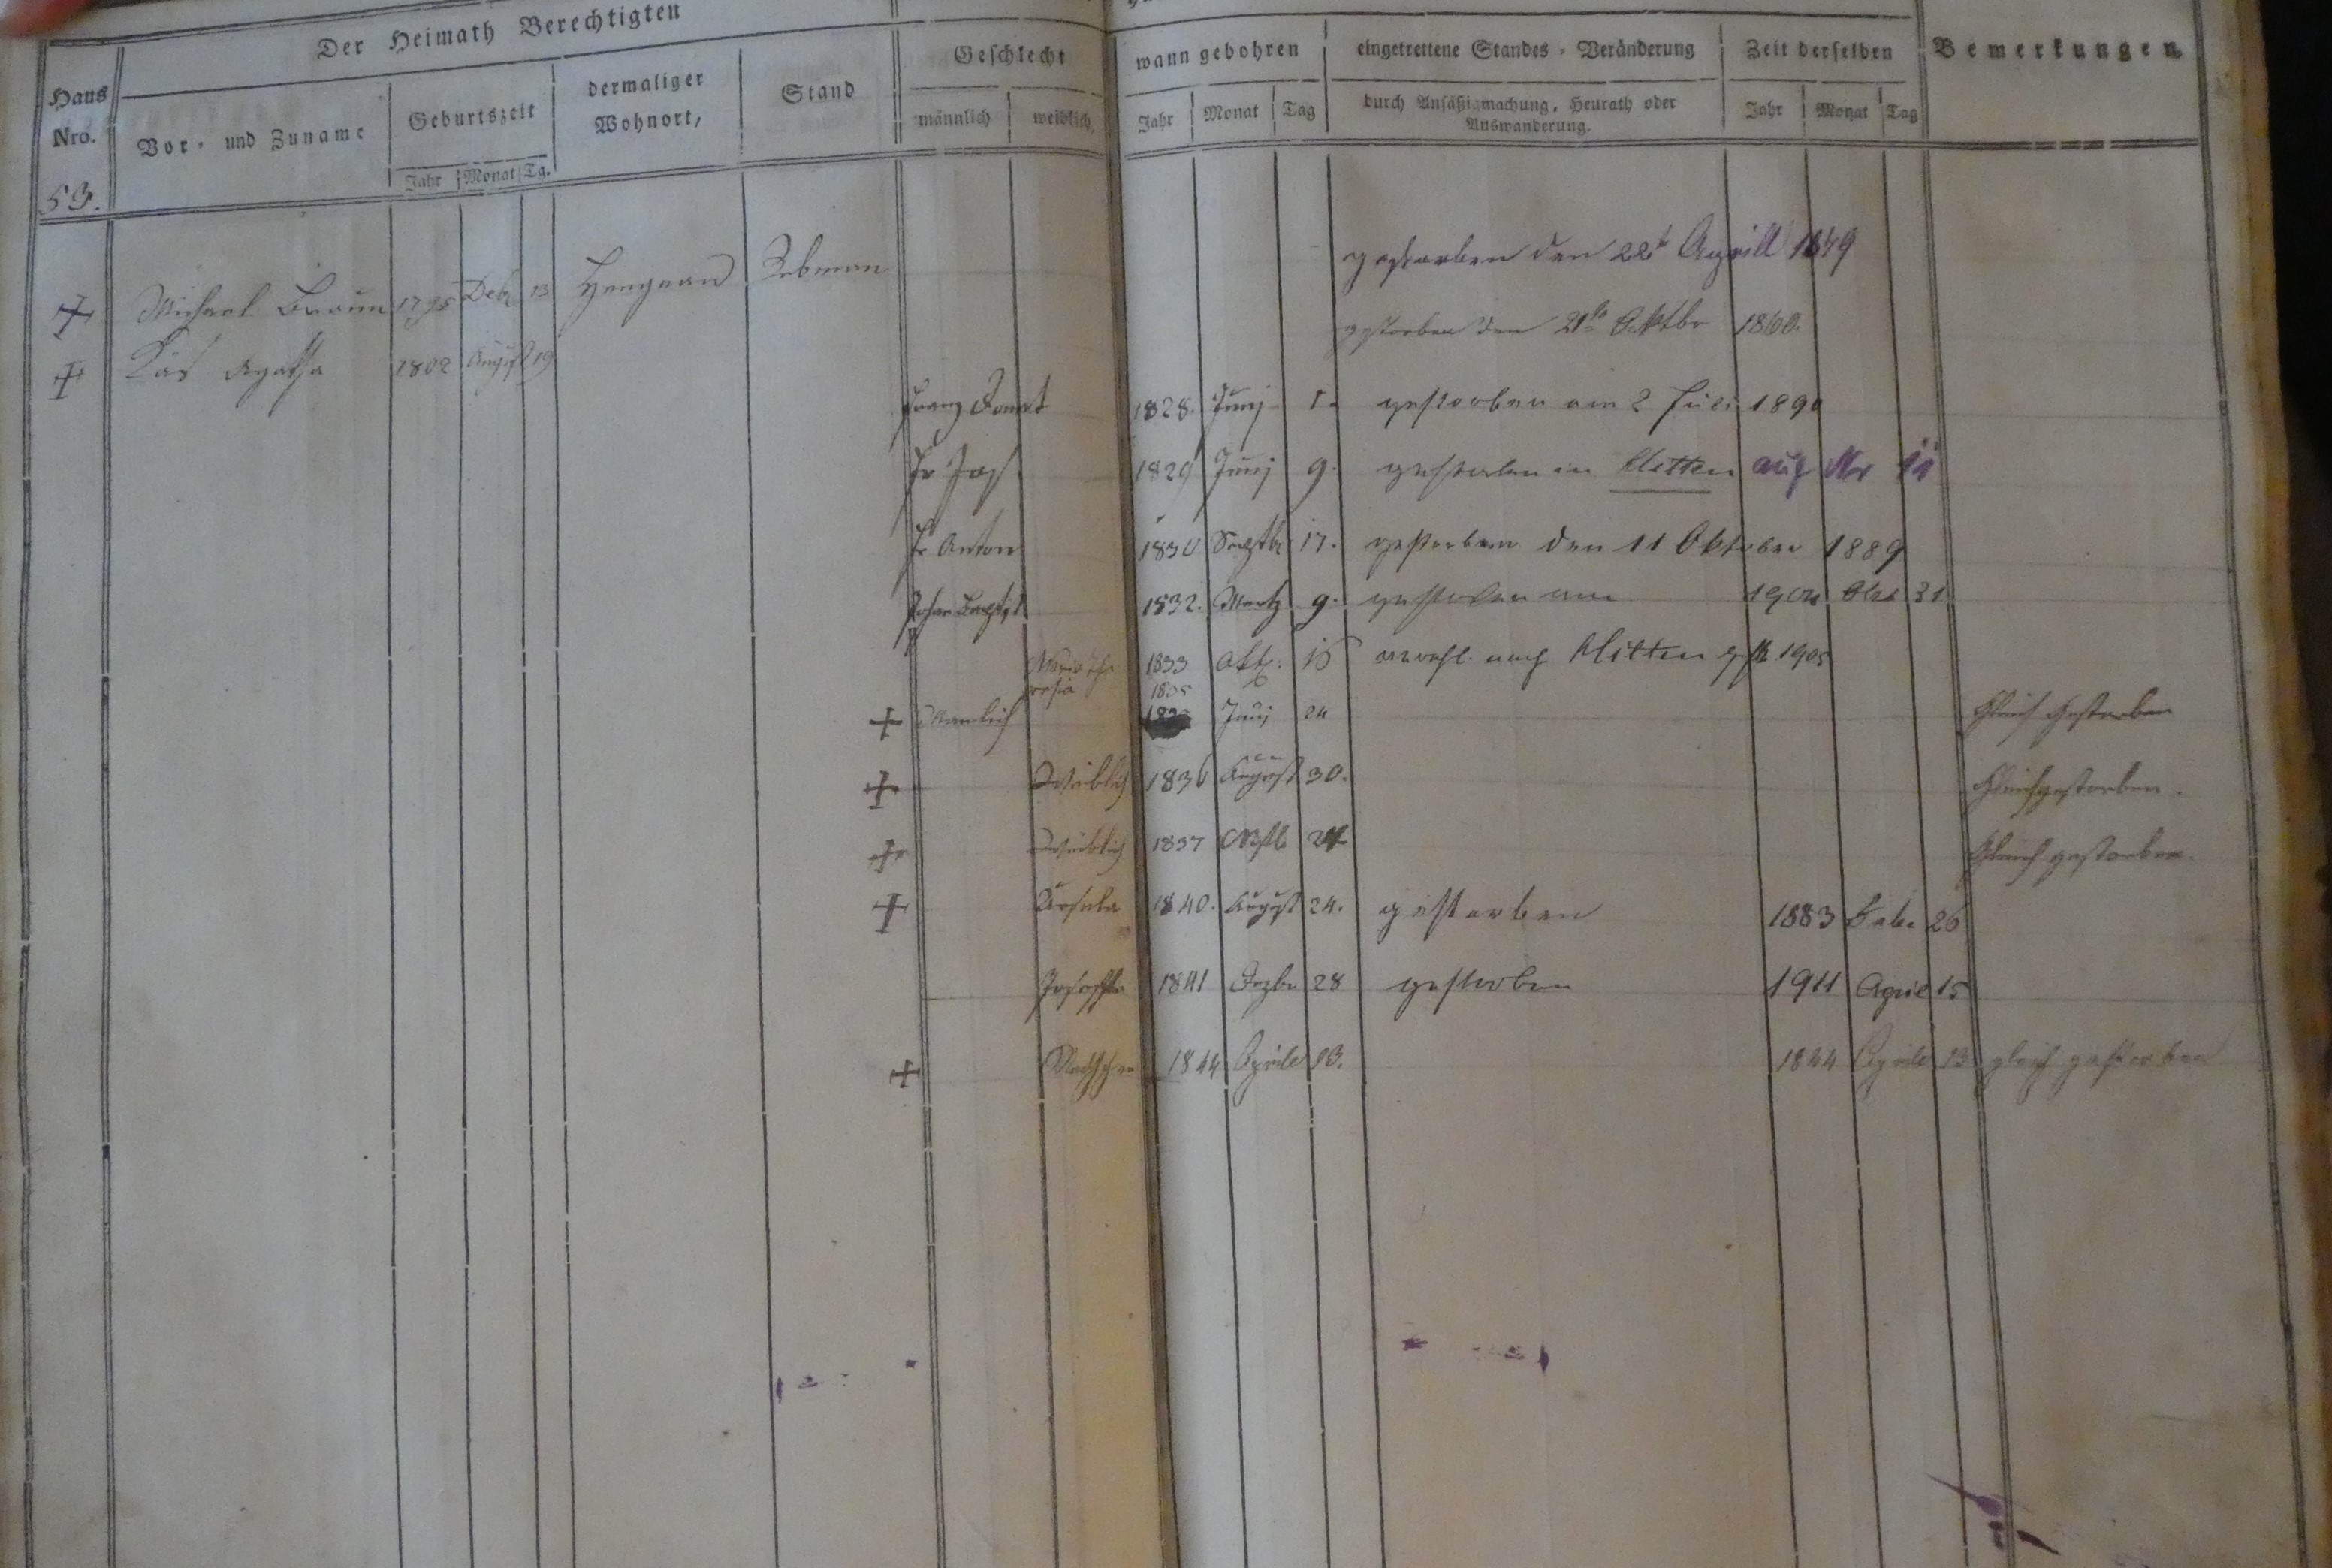 Der Heimath Berechtigten
Haus Nro.
Vor- und Zuname
Geburtszeit
Jahr Monat Tg.
dermaliger Wohnort,
Stand
Geschlecht
männlich weiblich,
wann gebohren
Jahr Monat Tag
eingetrettene Standes-Veränderung
durch Ansäßigmachung, Heurath oder
Auswanderung.
Zeit derselben
Jahr Monat Tag
Bemerkungen
53.
gestorben den 22t Aprill 1849
Michael Braun 1795 Debr 13 Hengnau Rebman
gestorben den 21te Oktbr 1860.
Käs Agatha 1802 August 19
Franz Donat 1828. Junj 1. gestorben am 2 Juli 1890
Fr Jos. 1829 Junj 9. gestorben in Mitten auf Nr 11
Fr Anton 1830 Septbr 17. gestorben den 11 Oktober 1889
Johan Baptist 1832. Mertz 9. gestorben am 1904 Okt 31
Maria Theresia 1833 Oktb. 15 nach Mitten gest 1905
Manlich 1835 Junj 24 Gleich Gestorben
Weiblich 1836 August 30. Gleichgestorben.
Weiblich 1837 24 Gleich gestorben.
Ursula 1840. August 24. gestorben 1883 26
Josepha 1841 Dezbr 28 gestorben 1911 April 15
1844 Aprile 13. 1844 Aprile 13 gleich gestorben